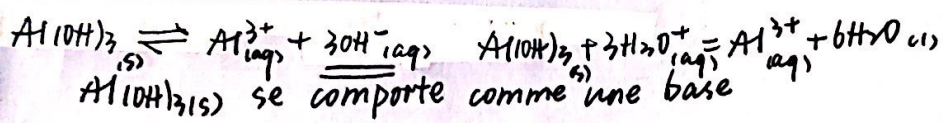 Al(OH)₃(s) ⇌ Al³⁺(aq) + 3OH⁻(aq) Al(OH)₃(s) + 3H₃O⁺(aq) = Al³⁺(aq) + 6H₂O(l)
Al(OH)₃(s) se comporte comme une base